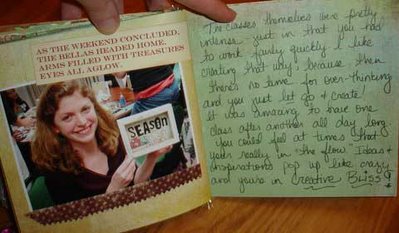 AS THE WEEKEND CONCLUDED,
THE BELLAS HEADED HOME.
ARMS FILLED WITH TREASURES
EYES ALL AGLOW.
SEASON
The classes themselves were pretty
intense just in that you had
to work fairly quickly. I like
creating that way, because then
there's no time for over-thinking
and you just let go & create!
It was amazing to have one
class after another all day long
you could feel at times that
you're really in the flow. Ideas &
inspirations pop up like crazy
and you're in Creative Bliss